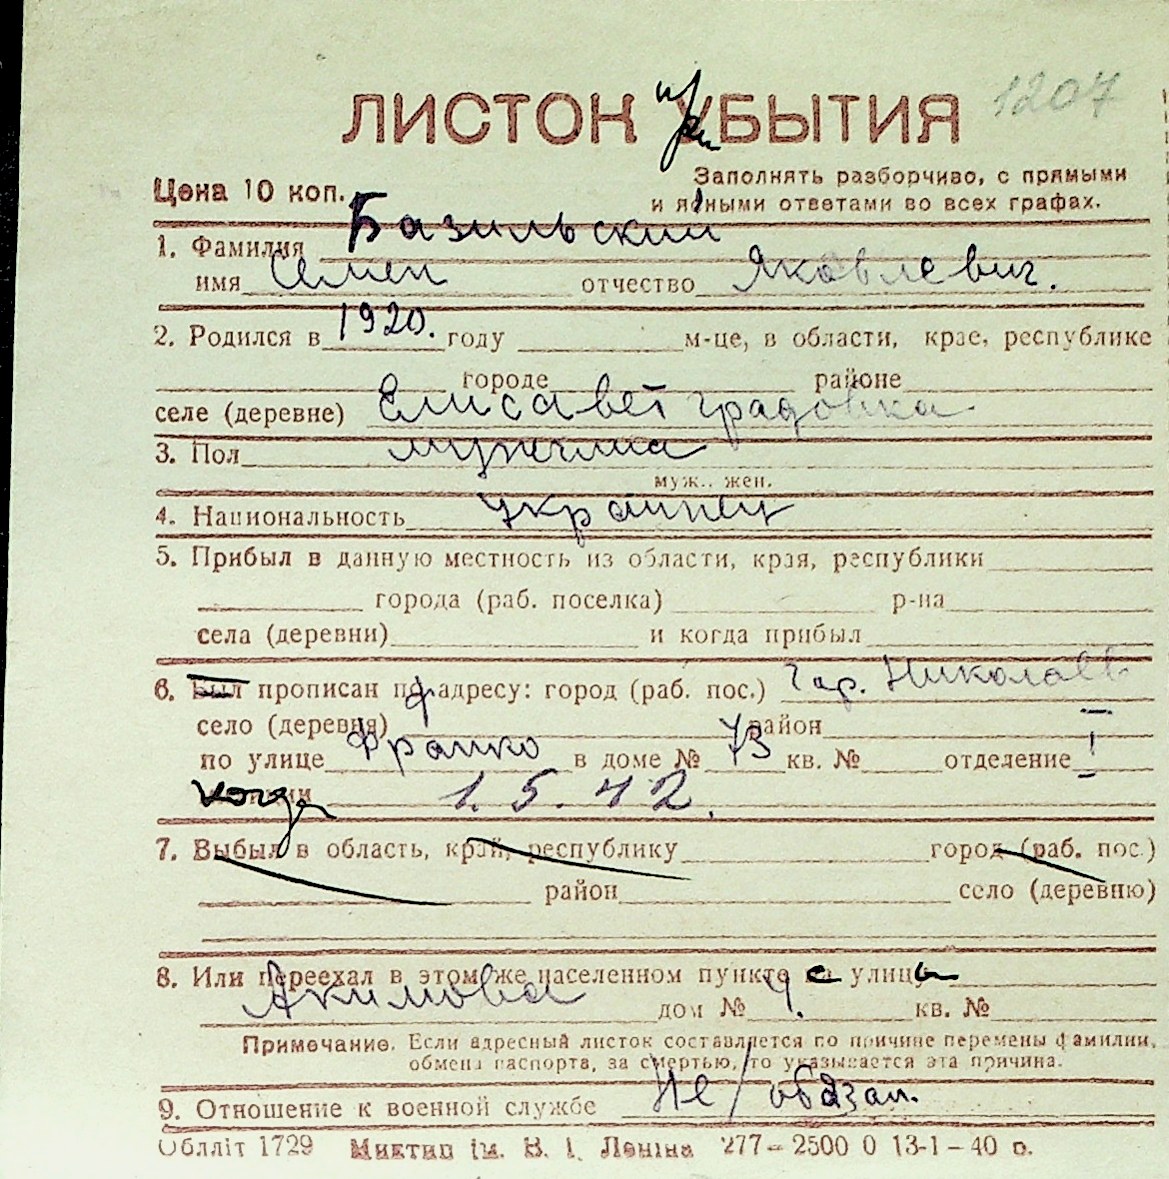 1207
ЛИСТОК УБЫТИЯ
при
Заполнять разборчиво, с прямыми
Цена 10 коп.
и ясными ответами во всех графах.
1. Фамилия Базильский
имя Семен отчество Яковлевич.
2. Родился в 1920. году м-це, в области, крае, республике
городе районе
селе (деревне) Елисаветградовка
3. Пол мужчина
муж.. жен.
4. Национальность украинец
5. Прибыл в данную местность из области, края, республики
города (раб. поселка) р-на
села (деревни) и когда прибыл
6. Был прописан по адресу: город (раб. пос.) гор. Николаев
село (деревня) район
по улице Франко в доме № 73 кв. № отделение I
когда 1.5.42.
7. Выбыл в область, край, республику город (раб. пос.)
район село (деревню)
8. Или переехал в этом же населенном пункте с улицы
Акимова дом № 4. кв. №
Примечание. Если адресный листок составляется по причине перемены фамилии,
обмена паспорта, за смертью, то указывается эта причина.
9. Отношение к военной службе Не/обязан.
Облліт 1729 Миктип ім. В. І. Леніна 277–2500 0 13-1–40 р.